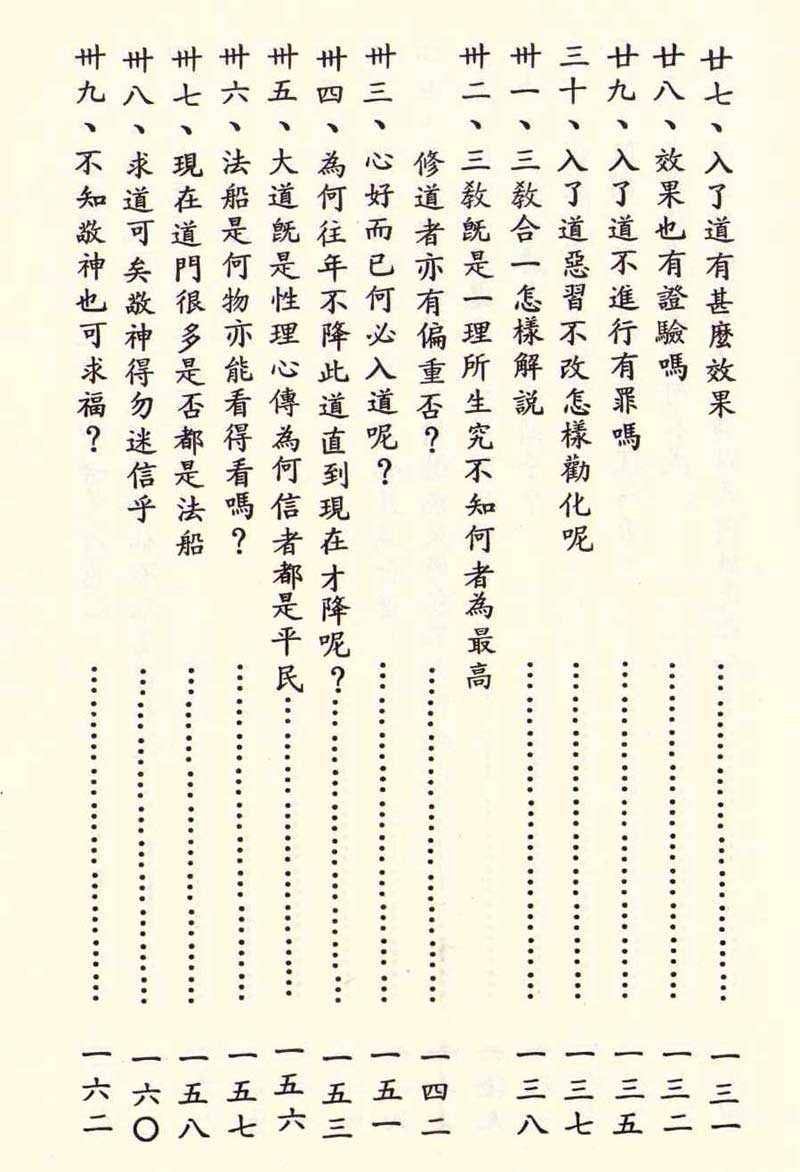 廿七、入了道有甚麼效果……一三一
廿八、效果也有證驗嗎……一三二
廿九、入了道不進行有罪嗎……一三五
三十、入了道惡習不改怎樣勸化呢……一三七
卅一、三敎合一怎樣解説……一三八
卅二、三敎旣是一理所生究不知何者為最高
修道者亦有偏重否？……一四二
卅三、心好而已何必入道呢？……一五一
卅四、為何往年不降此道直到現在才降呢？……一五三
卅五、大道旣是性理心傳為何信者都是平民……一五六
卅六、法船是何物亦能看得看嗎？……一五七
卅七、現在道門很多是否都是法船……一五八
卅八、求道可矣敬神得勿迷信乎……一六〇
卅九、不知敬神也可求福？……一六二